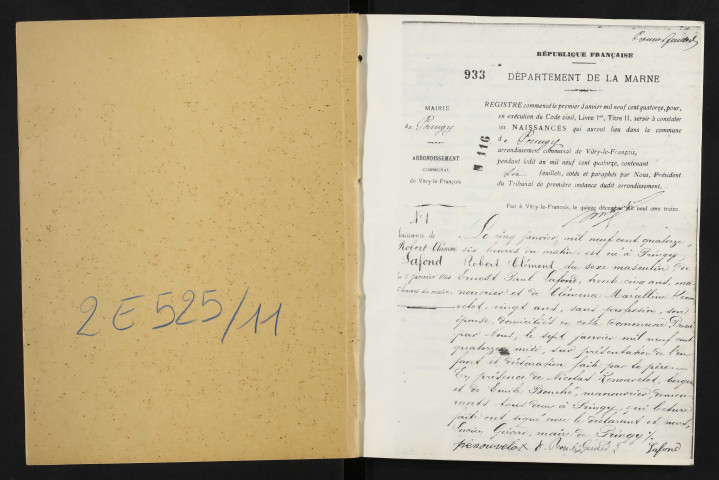 2 E 525/11
RÉPUBLIQUE FRANÇAISE
933 DÉPARTEMENT DE LA MARNE
MAIRIE
de Pringy
ARRONDISSEMENT
COMMUNAL
de Vitry-le-François
N 116
REGISTRE commencé le premier Janvier mil neuf cent quatorze, pour,
en exécution du Code civil, Livre 1er, Titre II, servir à constater
les NAISSANCES qui auront lieu dans la commune
de Pringy
arrondissement communal de Vitry-le-François,
pendant ledit an mil neuf cent quatorze, contenant
six feuillets, cotés et paraphés par Nous, Président
du Tribunal de première instance dudit arrondissement.
Fait à Vitry-le-François, le quinze décembre mil neuf cent treize.
N° 1
Naissance de
Robert Clément
Lafond
le 5 janvier 1914
6 heures du matin
Le cinq janvier mil neuf cent quatorze,
six heures du matin, est né à Pringy
Robert Clément, du sexe masculin, de
Ernest Paul Lafond, trente cinq ans, ma-
nouvrier et de Clémence
vingt ans, sans profession, son
épouse, domiciliés en cette commune. Dressé
par Nous, le sept janvier mil neuf cent
quatorze, midi, sur présentation de l'en-
fant et déclaration faite par le père
En présence de Nicolas Renouvelot, berger
et de Emile manouvrier, demeu-
rants tous deux à Pringy, qui lecture
faite ont signé avec le déclarant et nous
Gérard, maire de Pringy
Renouvelot Lafond